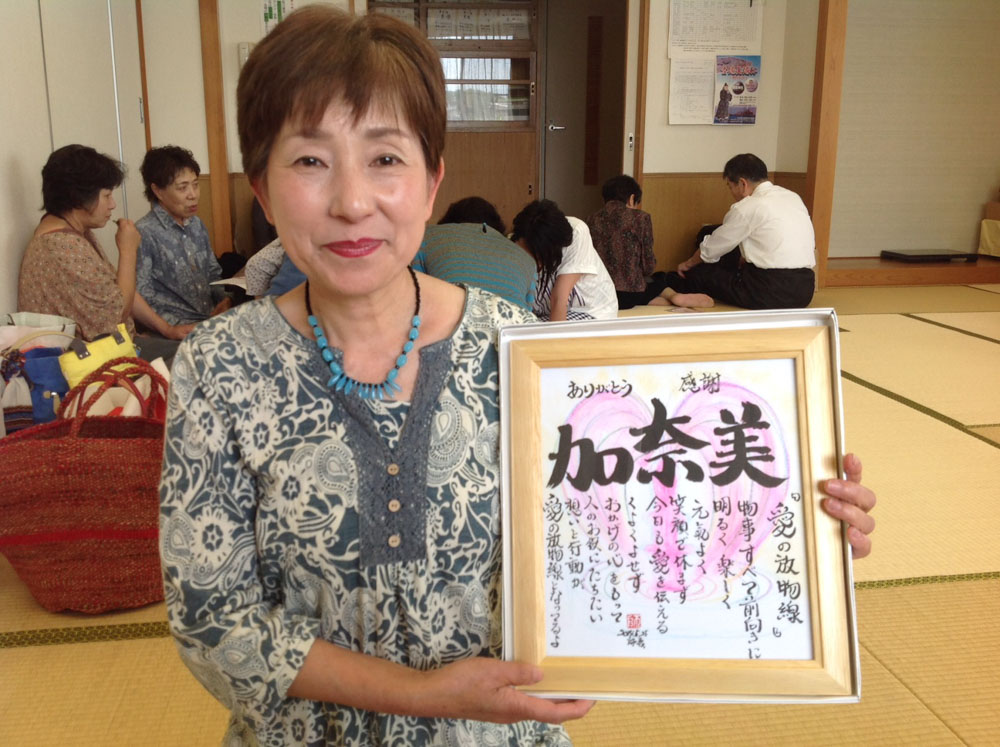 ありがとう 感謝
加奈美
『愛の放物線』
物事すべて前向きに
明るく楽しく
元気よく
笑顔で休まず
今日も愛を伝える
くよくよせず
おかげの心をもって
人のお役にたちたい
想いと行動が
愛の放物線となってるよ